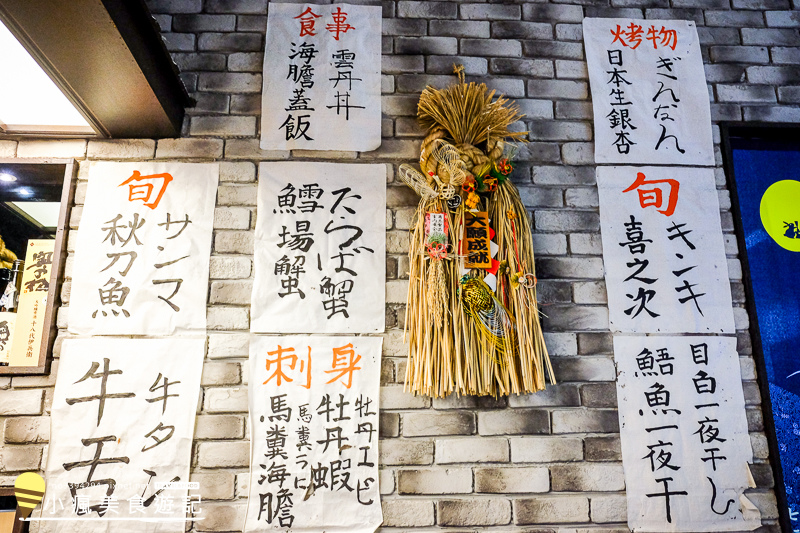 食事
雲丹丼
海膽蓋飯
烤物
ぎんなん
日本生銀杏
旬
サンマ
秋刀魚
たらば蟹
鱈場蟹
大願成就
旬
キンキ
喜之次
牛タン
牛舌
刺身
牡丹エビ
牡丹蝦
馬糞うに
馬糞海膽
目白一夜干し
鯃魚一夜干
小瘋美食遊記